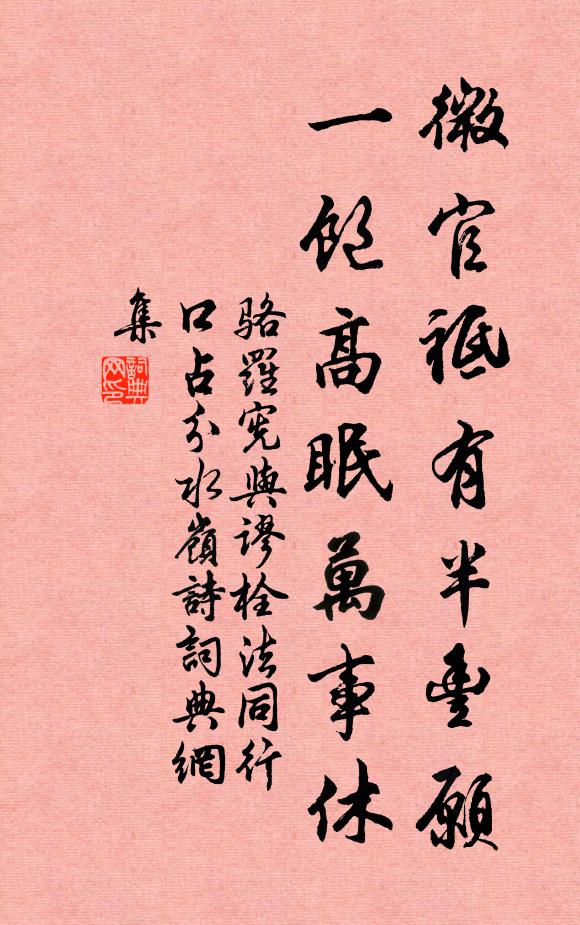 微官祗有半豊願
一飽高眠萬事休
駱羅憲與謬栓法同行
口占分水嶺詩詞典網
集
詞典網印